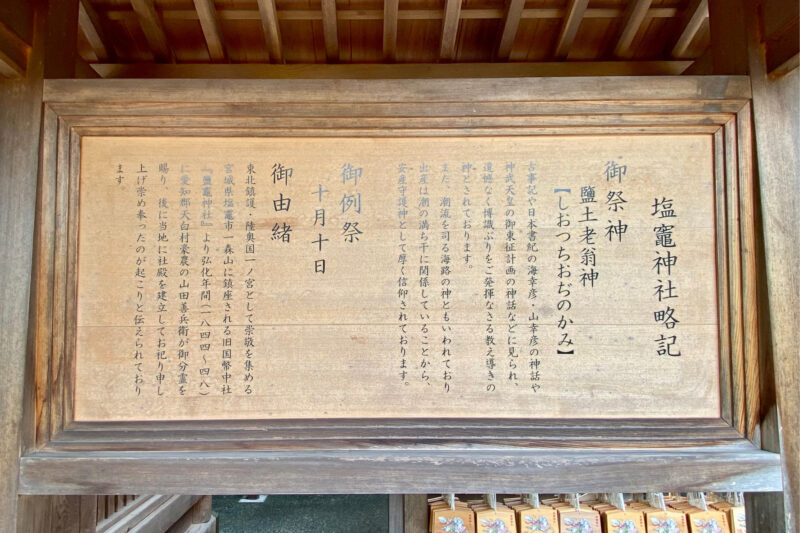 塩竈神社略記
御祭神
鹽土老翁神
【しおつちおぢのかみ】
古事記や日本書紀の海幸彦・山幸彦の神話や
神武天皇の御東征計画の神話などに見られ、
遺憾なく博識ぶりをご発揮なさる教え導きの
神とされております。
また、潮流を司る海路の神ともいわれており
出産は潮の満ち干に関係していることから、
安産守護神として厚く信仰されております。
御例祭
十月十日
御由緒
東北鎮護・陸奥国一ノ宮として崇敬を集める
宮城県塩竈市一森山に鎮座される旧国幣中社
『鹽竈神社』より弘化年間(一八四四～四八)
に愛知郡天白村豪農の山田善兵衛が御分霊を
賜り、後に当地に社殿を建立してお祀り申し
上げ崇め奉ったのが起こりと伝えられており
ます。